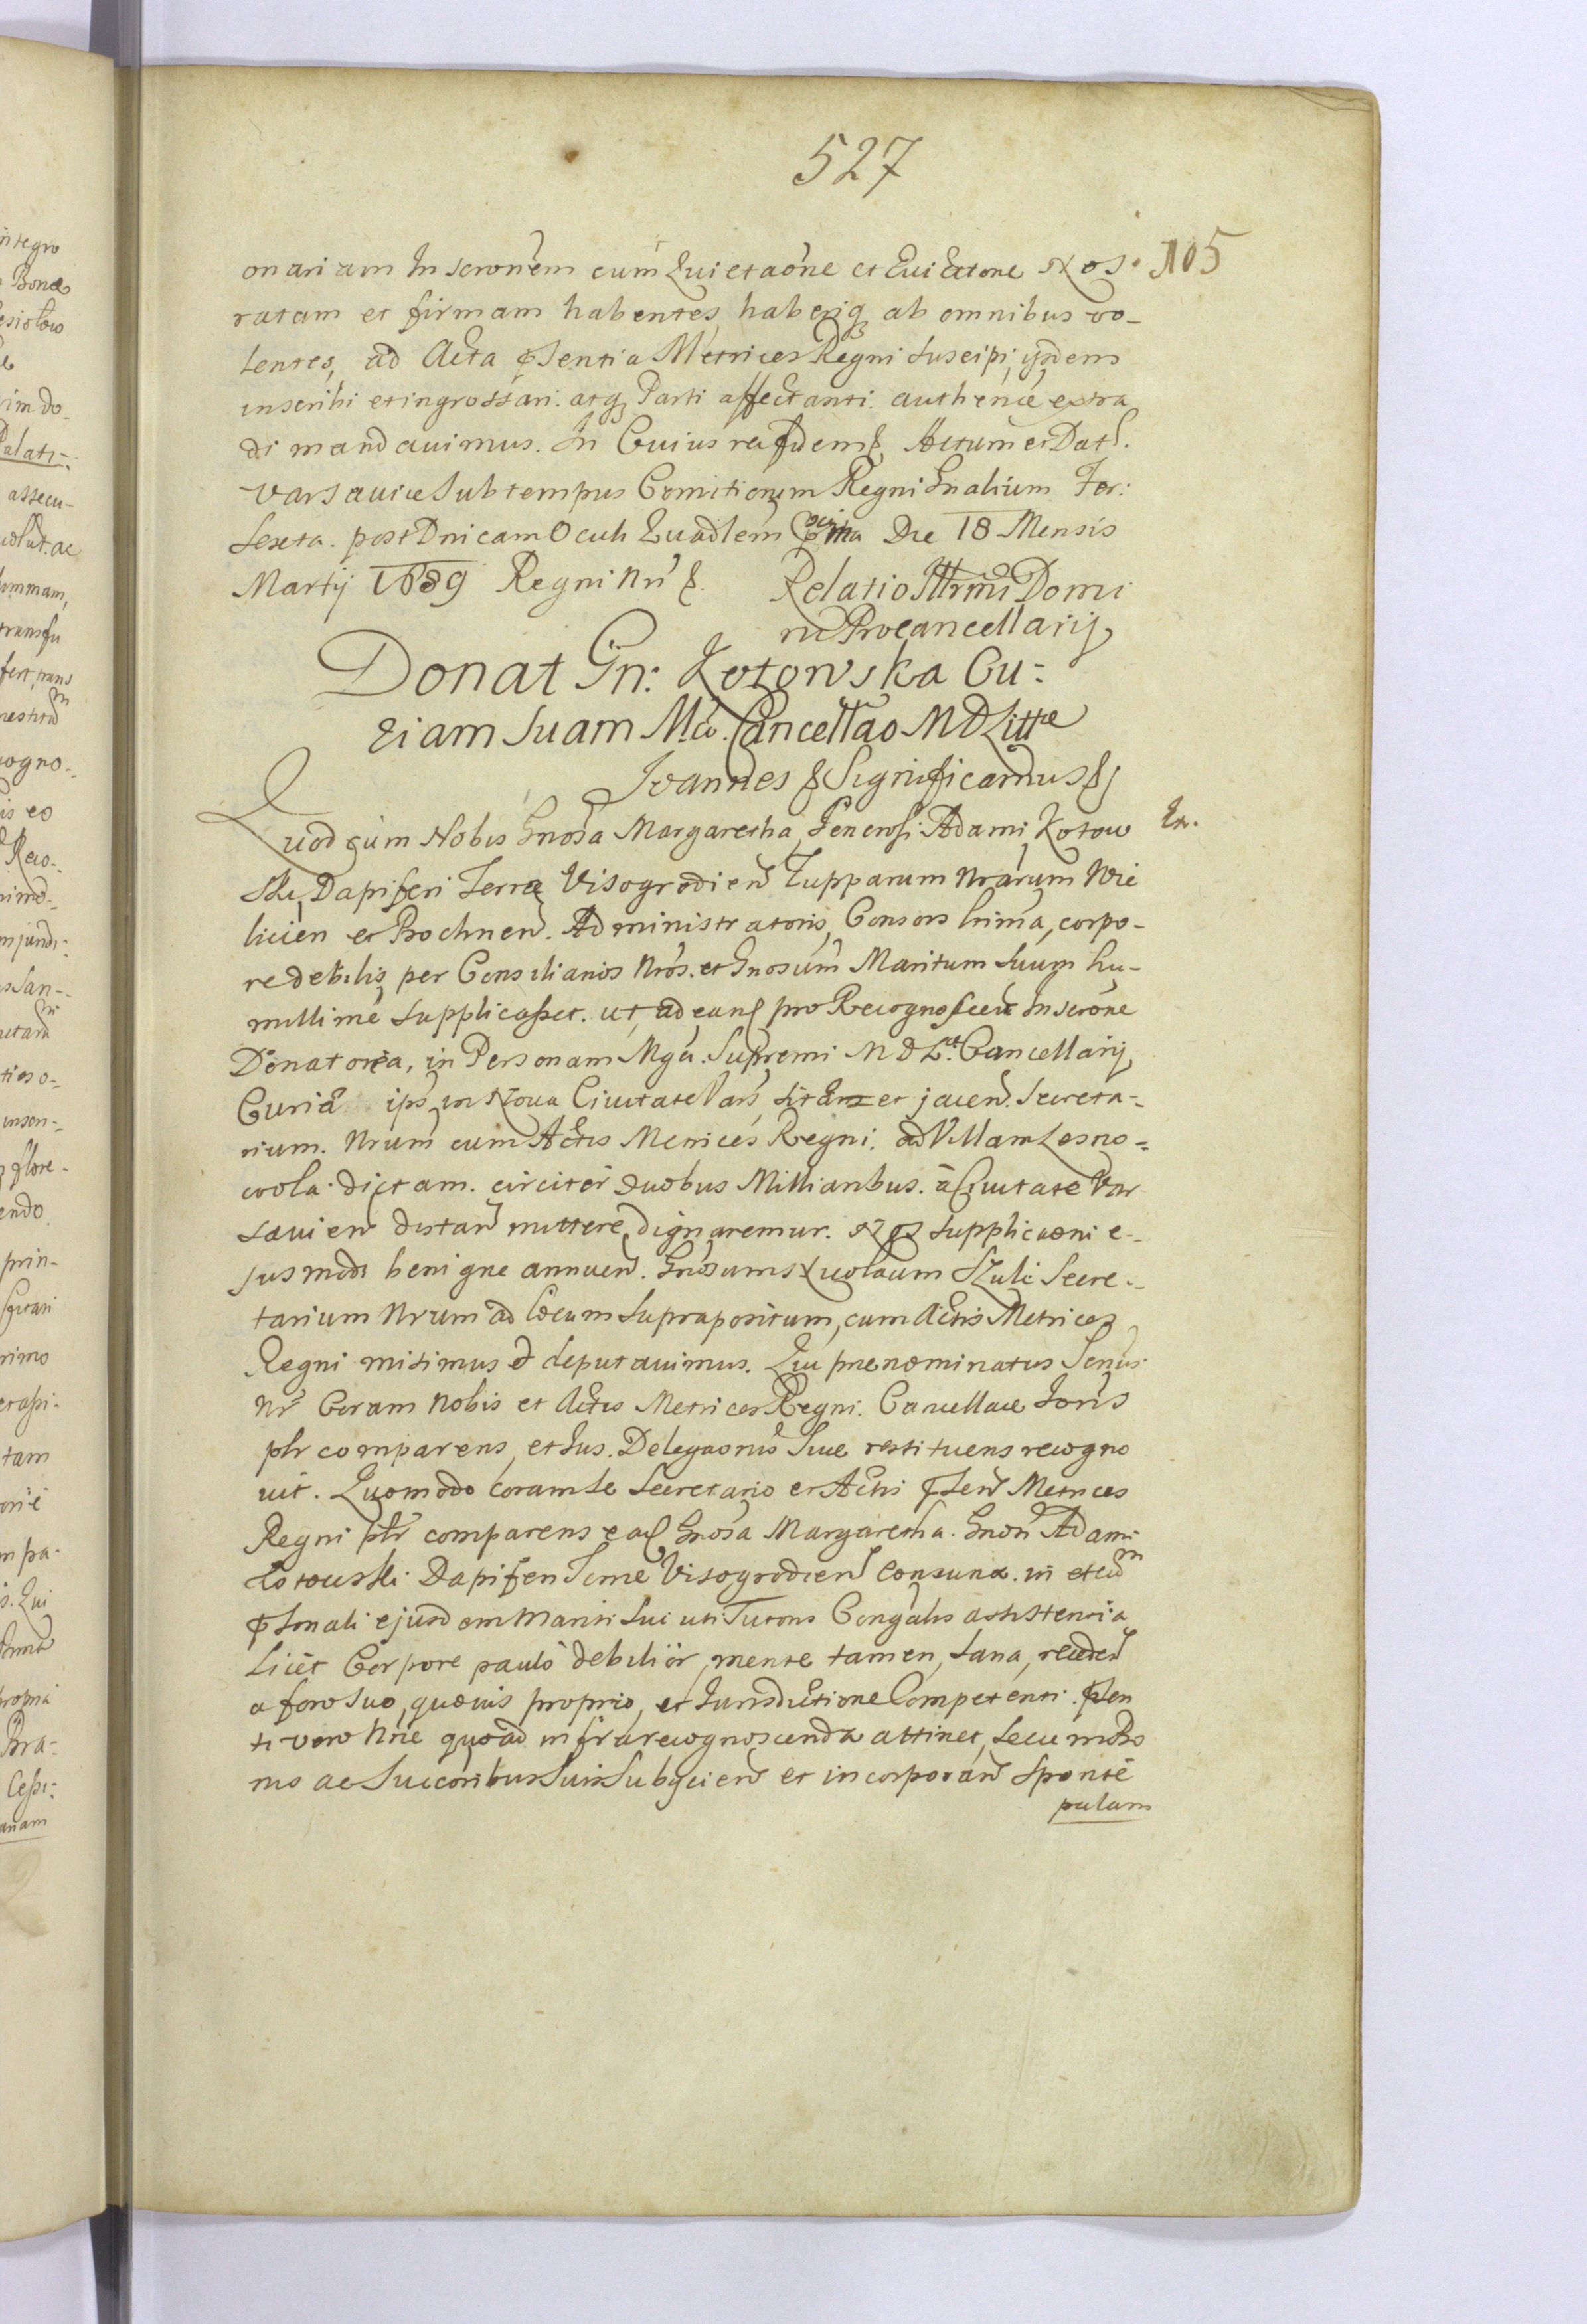 527
105
onariam Inscronem cum Quietaone et Evictone Nos
ratam et firmam habentes, haberiq ab omnibus vo-
lentes, ad Acta psentia Metrices Regni suscipi, ysdem
inscribi et ingrossari. atq Parti affectanti. authence extra
di mandavimus. In Cuius rei fidem &. Actum et Dat.
Varsaviæ sub tempus Comitiorum Regni Gnalium Fer:
Sexta. post Dnicam Oculi Quadlem pxma Die 18 Mensis
Martij 1639 Regni Nri &.
Relatio Illrmi Domi
ni Procancellarij
Donat Gn: Kotowska Cu-
riam suam Mco. Cancellao MDLittæ
Joannes & Significamus &
Quod cum Nobis Gnosa Margaretha Generosi Adami Kotow
Ex.
ski, Dapiferi Terræ Visogrodien Zupparum Nrarum Wie
licien et Bochnen. Administratoris, Consors ltima, corpo-
re debilis, per Consilianos Nros. et Gnosum Maritum suum hu-
millime supplicasset. ut, ad eam pro Recognoscen Inscrone
Donatoria, in Personam Mgci. Supremi M D Lit. Cancellarij,
Curiæ ips in Nova Civitate Vars, sitam et jacen. Secreta-
rium. Nrum cum Actis Metrices Regni. ad Villam Lesno-
wola dictam. circiter duobus Milliaribus. a Civitate Var
savien distan mittere, dignaremur. Nos supplicaoni e-
jusmodi benigne annuen. Gnosum Nicolaum Szulc Secre-
tarium Nrum ad locum suprapositum, cum Actis Metrices
Regni misimus et deputavimus. Qui prænominatus Secrius
Nr Coram Nobis et Actis Metrices Regni. Cancellaæ Joris
plr comparens, et Jus. Delegaonis suæ restituens recogno
vit. Quomodo coram se Secretario et Actis psen Metrices
Regni plr comparens ead Gnosa Margaretha. Gnosi Adami
Kotowski Dapiferi Terræ Visogrodien Consunx. in et cum
psonali ejusdem Mariti sui uti Tutoris Congalis assistentia
Licet Corpore paulo debilior, mente tamen, sana, receden
a foro suo, quovis proprio, et Jurisdictione Competenti. psen
ti vero Nræ quoad infra recognoscenda attinet, se cum bo
nis ac succoribus suis subyicien et incorporan sponte
palam